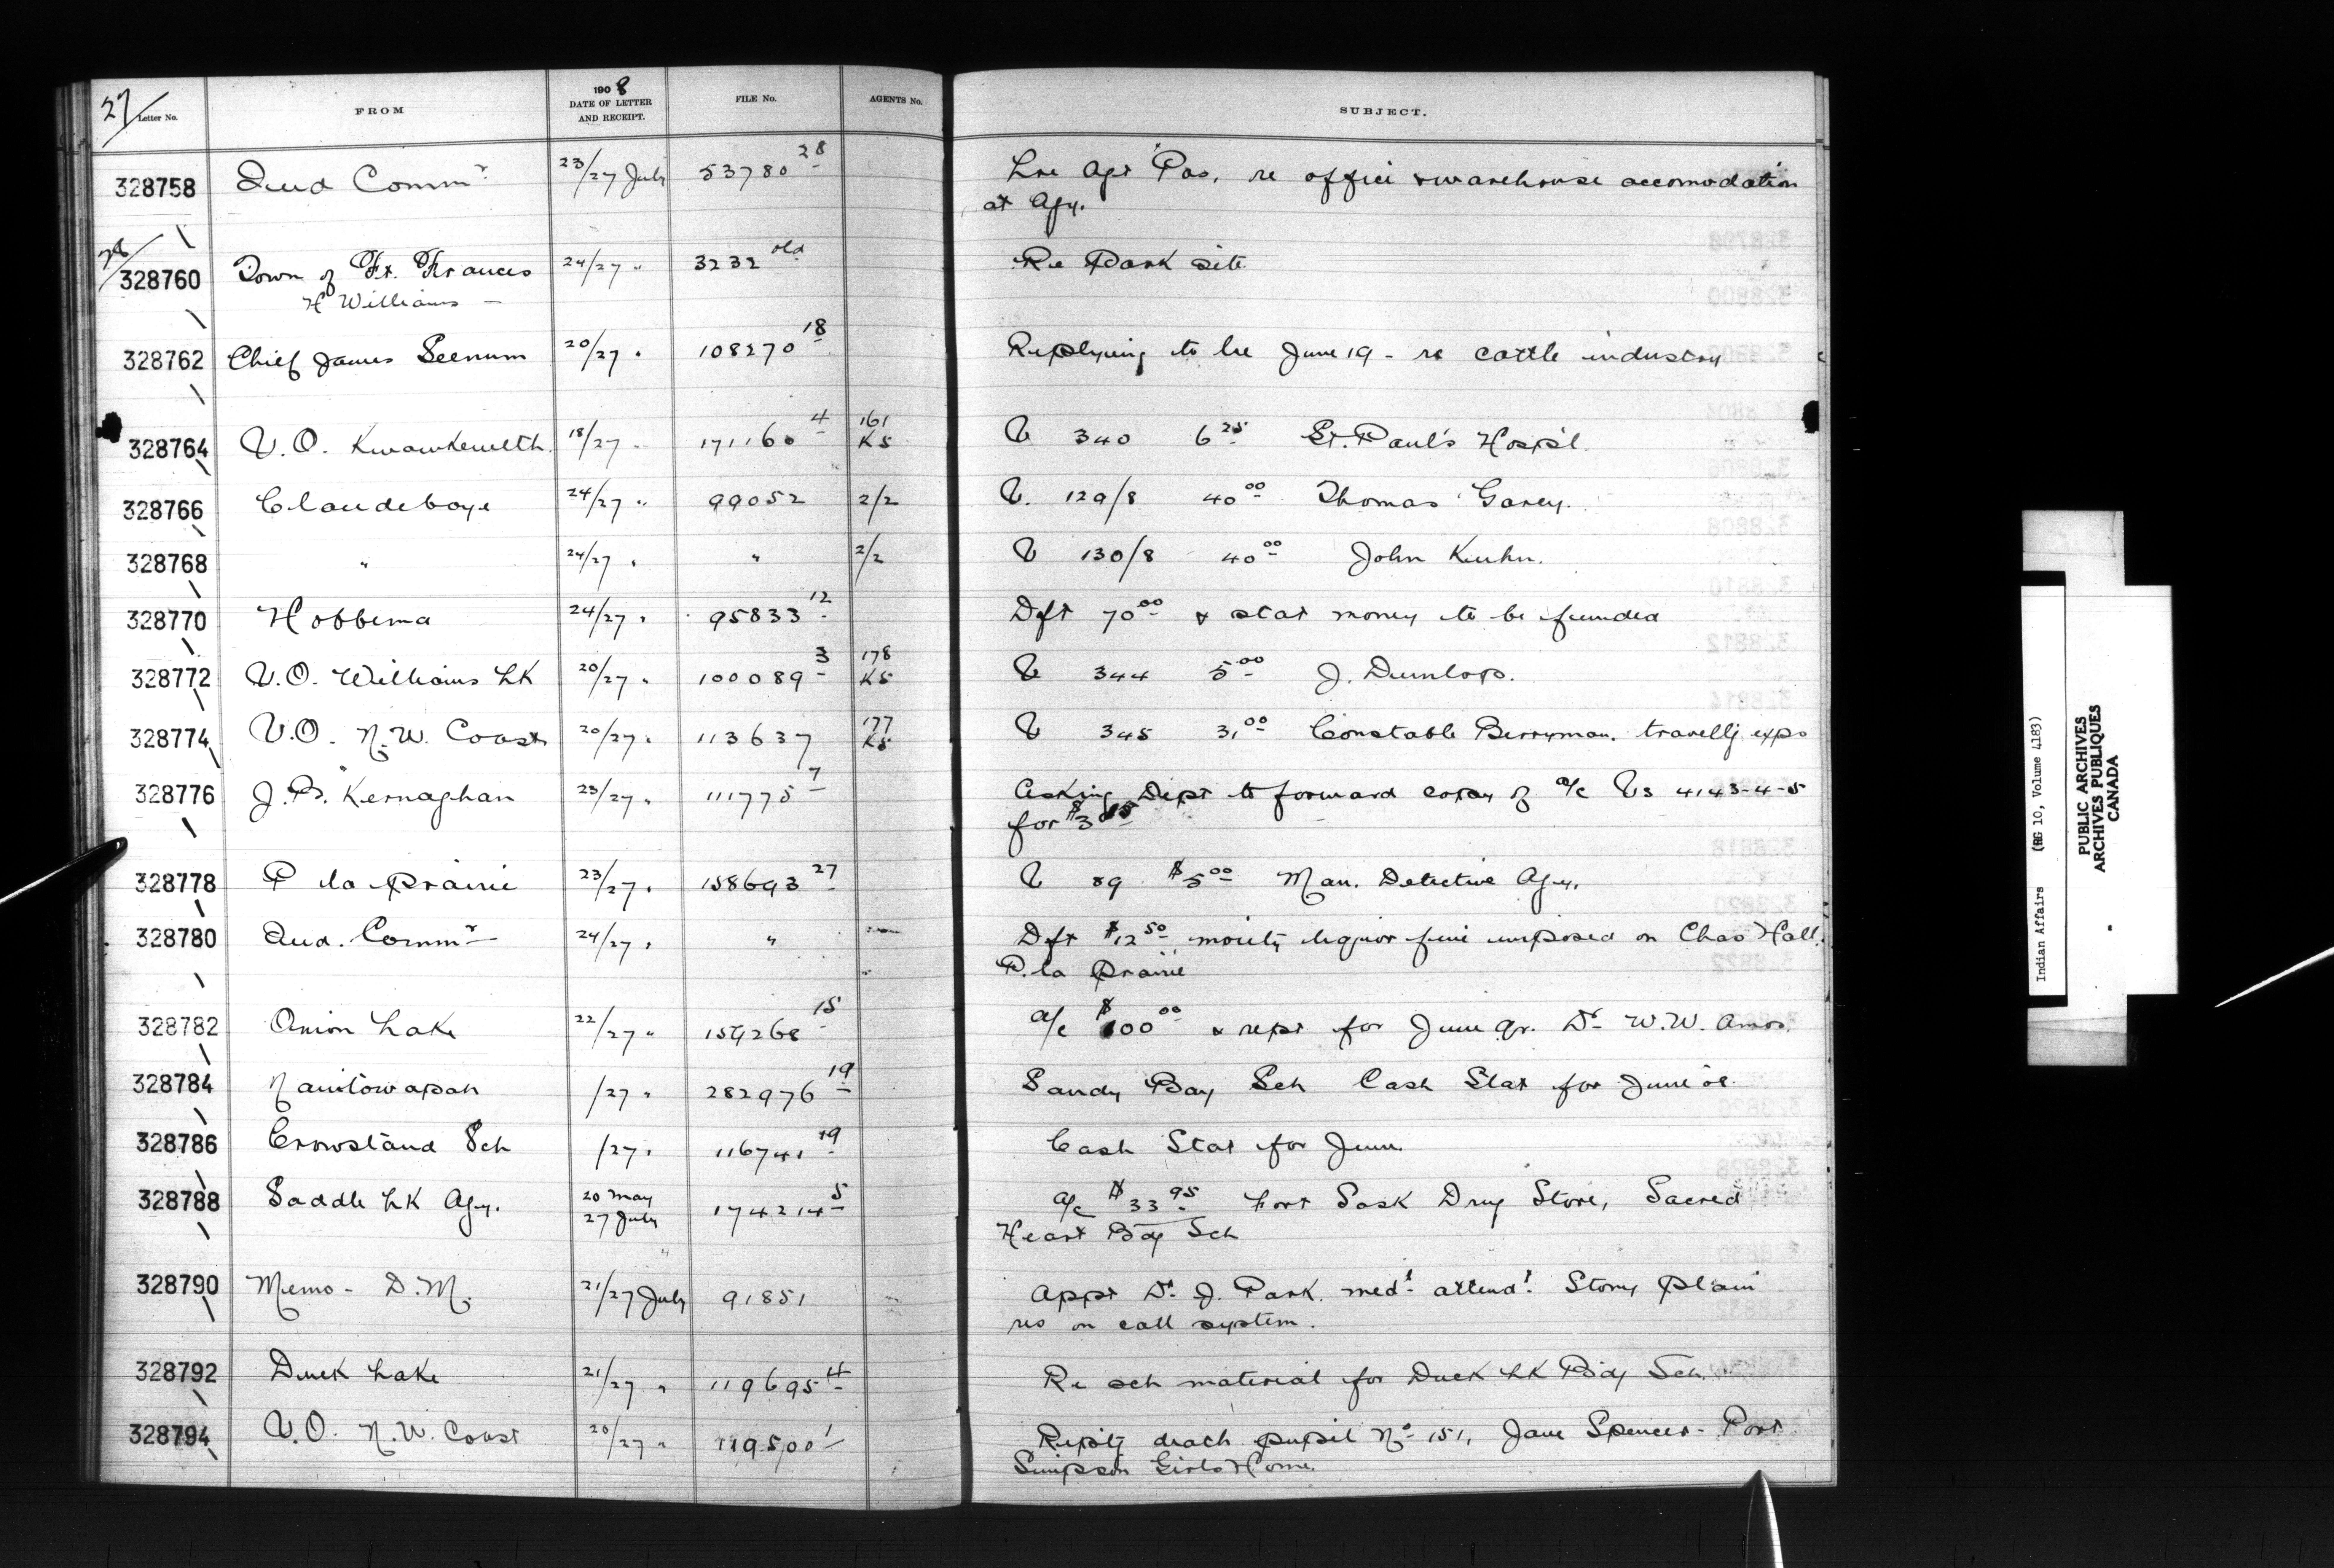 27/ Letter No. FROM 1908 DATE OF LETTER AND RECEIPT. FILE No. AGENTS No. SUBJECT.
328758 Ind Commr 23/27 July 53780 28 Lre Agt Pas, re office & warehouse accomodation
at Agy.
28/
328760 Town of Ft. Frances 24/27 " 3232 old Re Park site
H Williams —
328762 Chief James Seenum 20/27 " 108270 18 Replying to lre June 19 - re cattle industry
328764 V.O. Kwawkewlth 18/27 " 171160 4 161 KS V 340 6 25 St. Paul's Hosp'l.
328766 Clandeboye 24/27 " 99052 2/2 V. 129/8 40 00 Thomas Garey.
328768 " 24/27 " " 2/2 V 130/8 40 00 John Kuhn.
328770 Hobbema 24/27 " 95833 12 Dft 70 00 & stat money to be funded
328772 V.O. Williams Lk 20/27 " 100089 3 178 KS V 344 5 00 J. Dunlop.
328774 V.O. N.W. Coast 20/27 " 113637 177 KS V 345 3, 00 Constable Berryman. travellg exps
328776 J.P. Kernaghan 23/27 " 111775 7 Asking Dept to forward copy of a/c Vs 4143-4-5
for $3
328778 P la Prairie 23/27 " 158693 27 V 89 $5 00 Man. Detective Agy.
328780 Ind. Commr 24/27 " " Dft $12 50 moiety liquor fine imposed on Chas Hall.
P. la Prairie
328782 Onion Lake 22/27 " 159268 15 a/c $100 00 & rept for June qr. Dr W.W. Amos.
328784 Manitowapah /27 " 282976 19 Sandy Bay Sch Cash Stat for June '08
328786 Crowstand Sch /27 " 116741 19 Cash Stat for June.
328788 Saddle Lk Agy. 20 May 27 July 174214 5 a/c $33 95 Fort Sask Drug Store, Sacred
Heart Bdg Sch
328790 Memo - D.M. 21/27 July 91851 Appt Dr. J. Park. med'l attend't Stony Plain
res on call system.
328792 Duck Lake 21/27 " 119695 4 Re sch material for Duck Lk Bdg Sch.
328794 V.O. N.W. Coast 20/27 " 119500 1 Reptg death pupil No 151, Jane Spencer - Port
Simpson Girls Home.
Indian Affairs (RG 10, Volume 4183)
PUBLIC ARCHIVES
ARCHIVES PUBLIQUES
CANADA